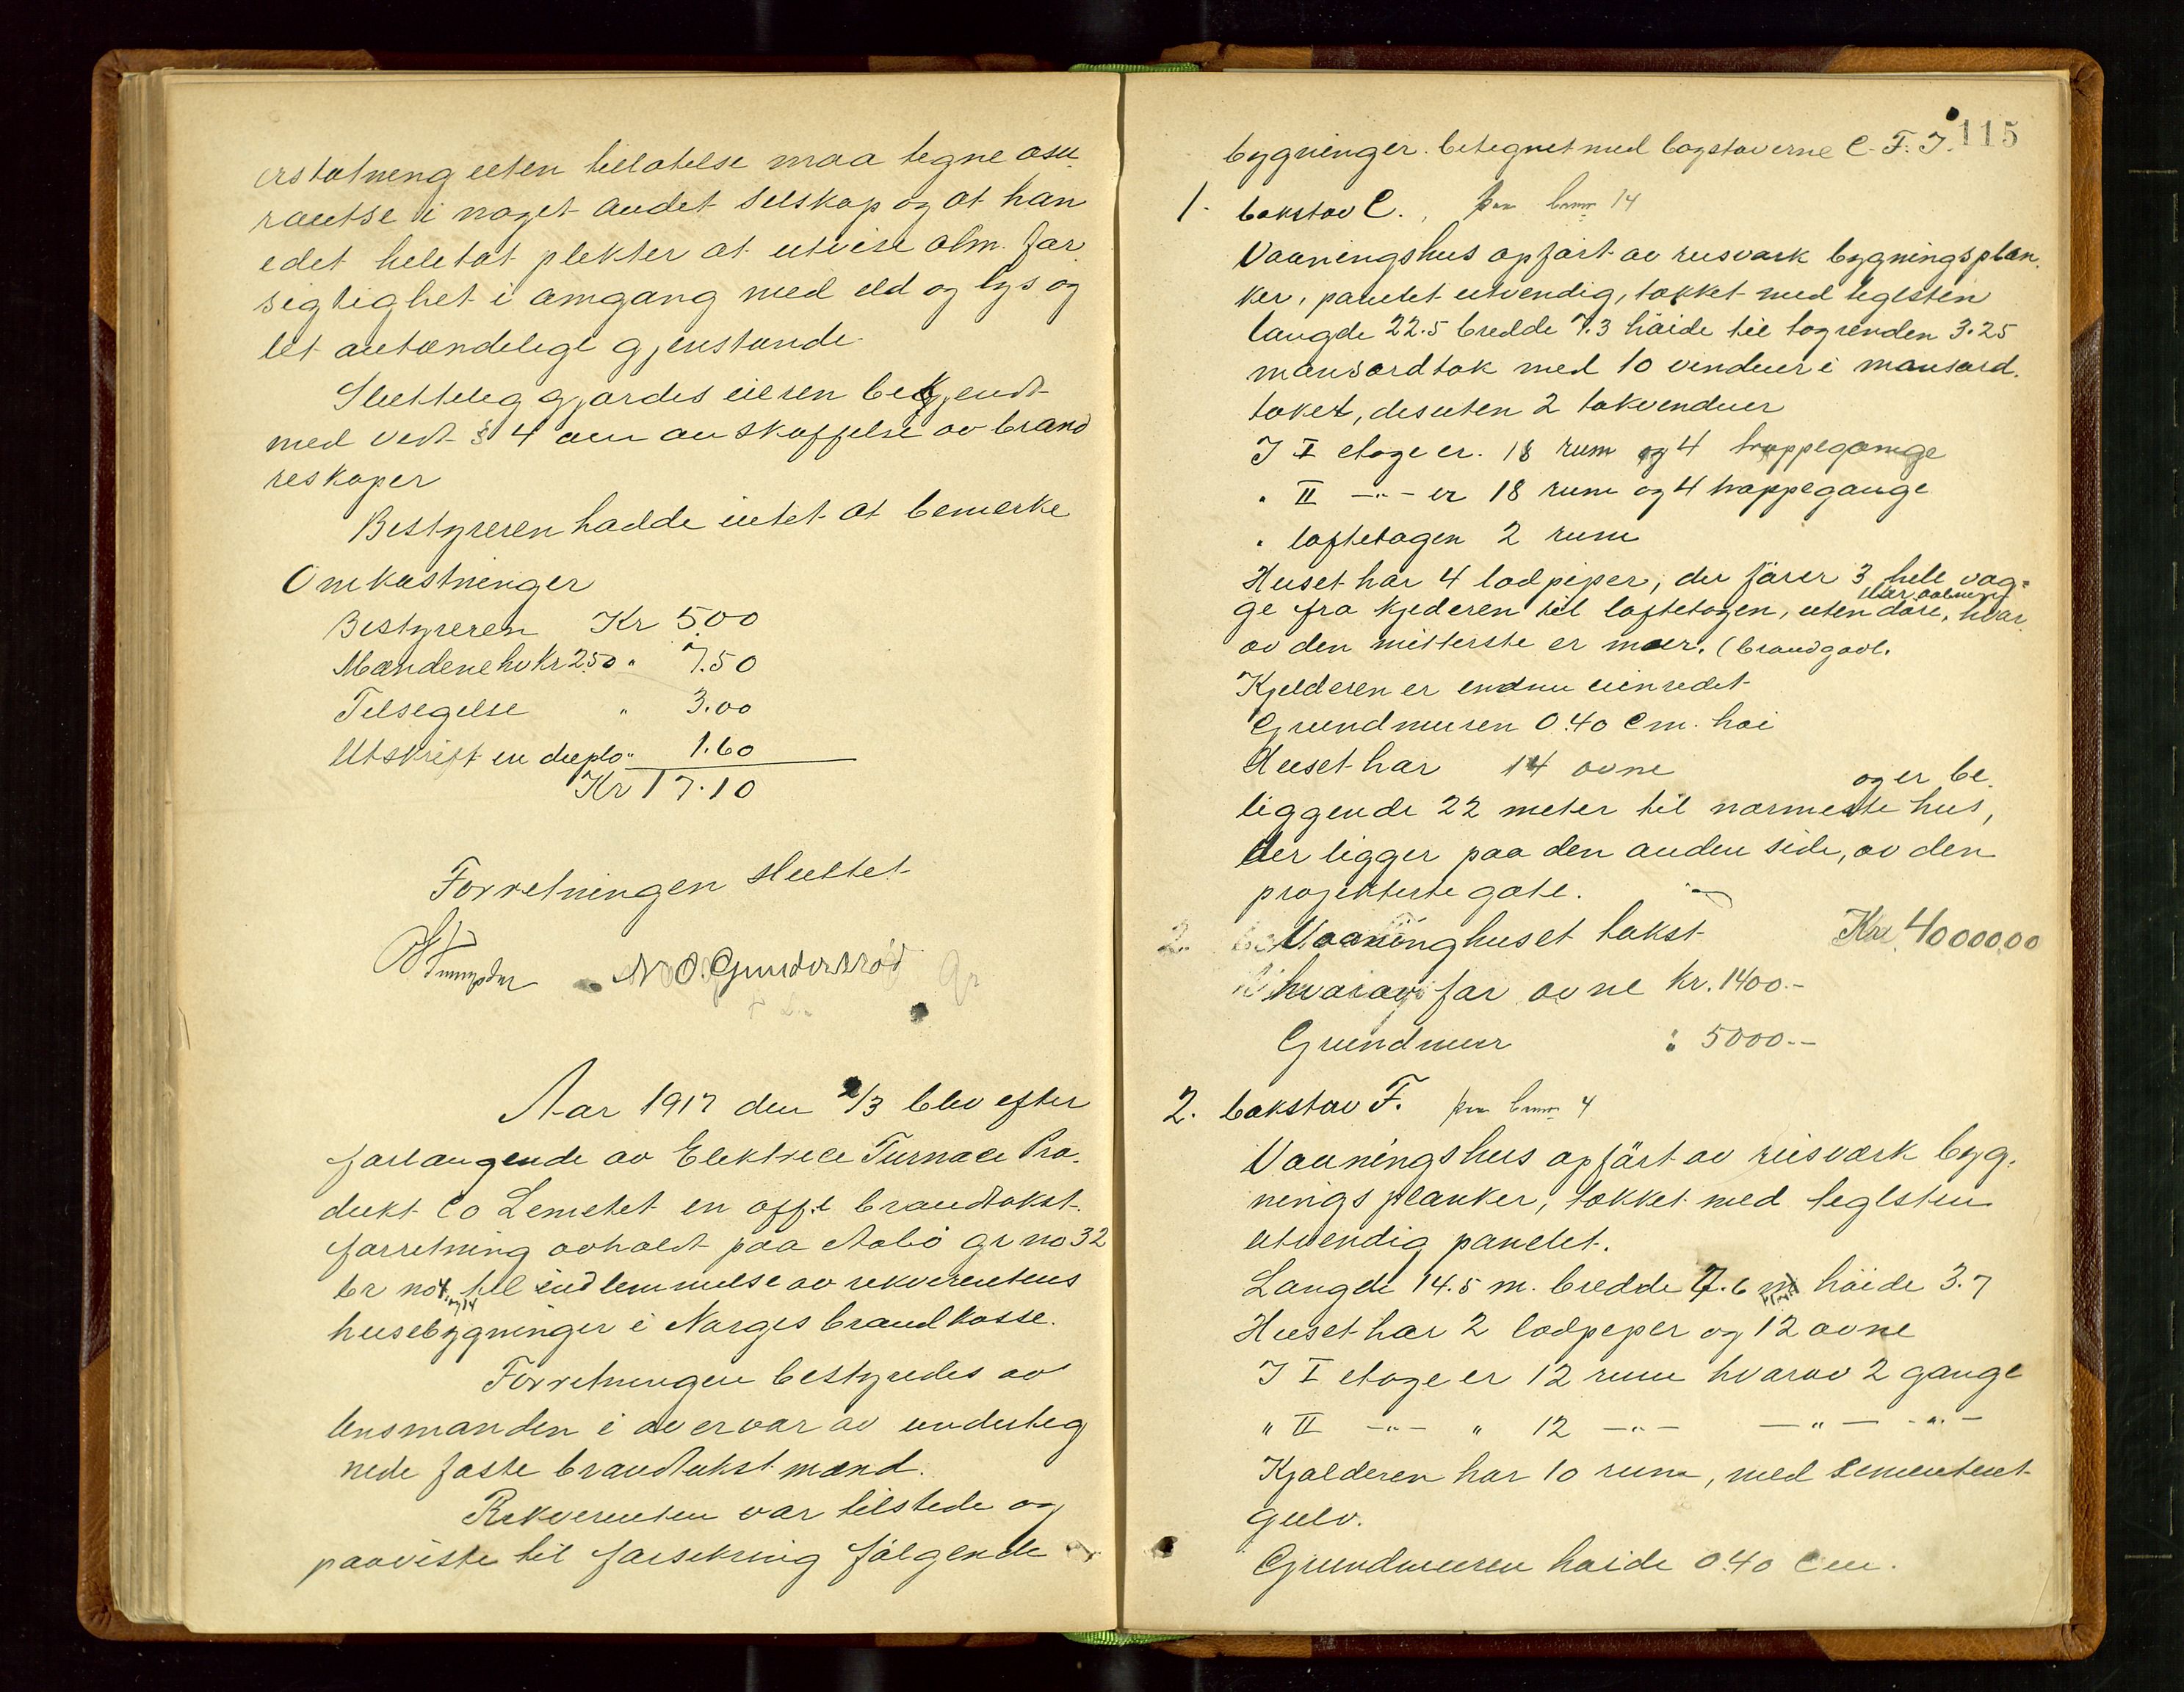 erstatning uten tillatelse maa tegne asu
rantse i noget andet selskap og at han
edet heletat plekter at utvise alm. for
sigtighet i omgang med eld og lys og
let antændelige gjenstande
Sluttelig gjordes eieren bekjendt
med vedt § 4 om anskaffelse av brand
reskaper
Bestyreren hadde intet at bemerke
Omkostninger
Bestyreren Kr 5.00
Mændene hv Kr 2.50 " 7.50
Tilsigelse " 3.00
Utskrift in duplo " 1.60
Kr 17.10
Forretningen sluttet
N O. Gunderssrød
Aar 1917 den 2/3 blev efter
forlangende av Elektric Furnace Pro.
dukt Co Lemetet en off.e brandtakst.
forretning avholdt paa Aabö gr no 32
br no 4. og 14 til indlemmelse av rekvirentens
husebygninger i Norges brandkasse.
Forretningen bestyredes av
lensmanden i overvær av underteg
nede faste brandtakst mænd.
Rekvirenten var tilstede og
paaviste til forsikring følgende
115
bygninger. betegnet med bogstaverne C. F. J.
1. bokstav C. paa brnr 14
Vaaningshus opført av reisværk bygningsplan.
ker, panelet utvendig, tækket med teglsten
længde 22.5 bredde 7.3 høide til tagrenden 3.25
mansardtak med 10 vinduer i mansard.
taket, desuten 2 takvinduer
I I etage er. 18 rum og 4 trappegange
" II -"- er 18 rum og 4 trappegange
" loftetagen 2 rum
Huset har 4 lodpiper, der fører 3 hele væg=
ge fra kjederen til loftetagen, uten døraabning døre, hvor
av den mitterste er muer. (brandgavl.
Kjelderen er endnu uinredet
Grundmuren 0.40 Cm. høi
Huset har 14 ovne og er be.
liggende 22 meter til nærmeste hus,
der ligger paa den anden side, av den
projekterte gate.
Vaaninghuset takst Kr. 40000.00
hvorav for ovne kr. 1400.-
Grundmur " 5000.--
2. bokstav F. paa brnr 4
Vaaningshus opført av reisværk byg.
nings planker, tækket med teglsten
utvendig panelet.
Længde 14.5 m. bredde 7.6 m høide 3.7
Huset har 2 lodpiper og 12 ovne
I I etage er 12 rum hvorav 2 gange
" II -"- " 12 -"- -"- -"-
Kjælderen har 10 rum, med sementert
gulv.
Grundmuren høide 0.40 Cm.